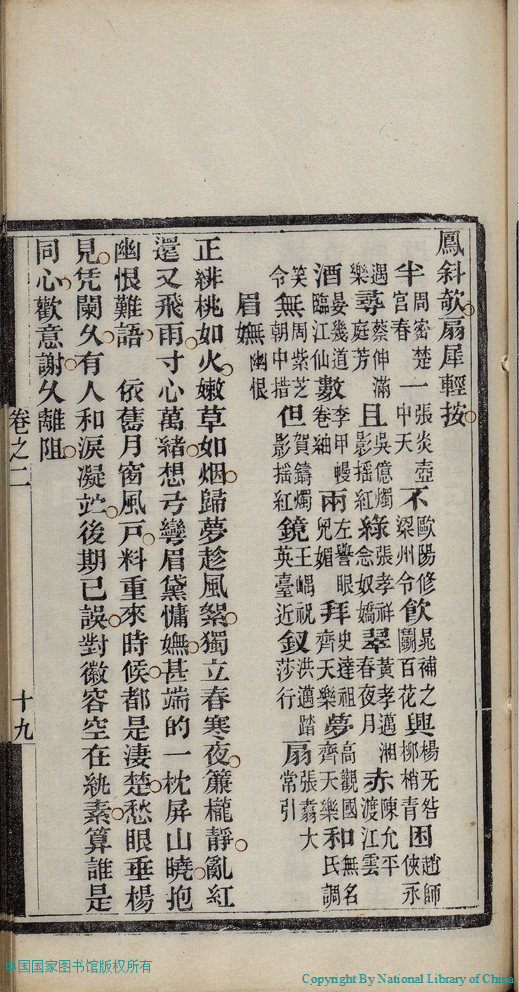 鳳斜欹扇犀輕按
半周密楚宮春一張炎壺中天不歐陽修梁州令飲晁補之鬭百花興楊旡咎柳梢青困趙師俠永
遇樂尋蔡伸滿庭芳且吳億燭影搖紅綠張孝祥念奴嬌翠黃孝邁湘春夜月赤陳允平渡江雲
酒晏幾道臨江仙數李甲幔卷紬兩左譽眼兒媚拜史達祖齊天樂夢高觀國齊天樂和無名氏調
笑令無周紫芝朝中措但賀鑄燭影搖紅鏡王嵎祝英臺近釵洪邁踏莎行扇張翥大常引
眉嫵幽恨
正緋桃如火嫩草如烟歸夢趁風絮獨立春寒夜簾櫳靜亂紅
還又飛雨寸心萬緒想弓彎眉黛慵嫵甚端的一枕屏山曉抱
幽恨難語　依舊月窗風戶料重來時候都是淒楚愁眼垂楊
見凭闌久有人和淚凝竚後期已誤對徽容空在紈素算誰是
同心歡意謝久離阻
卷之二
十九
中国国家图书馆版权所有
Copyright By National Library of China